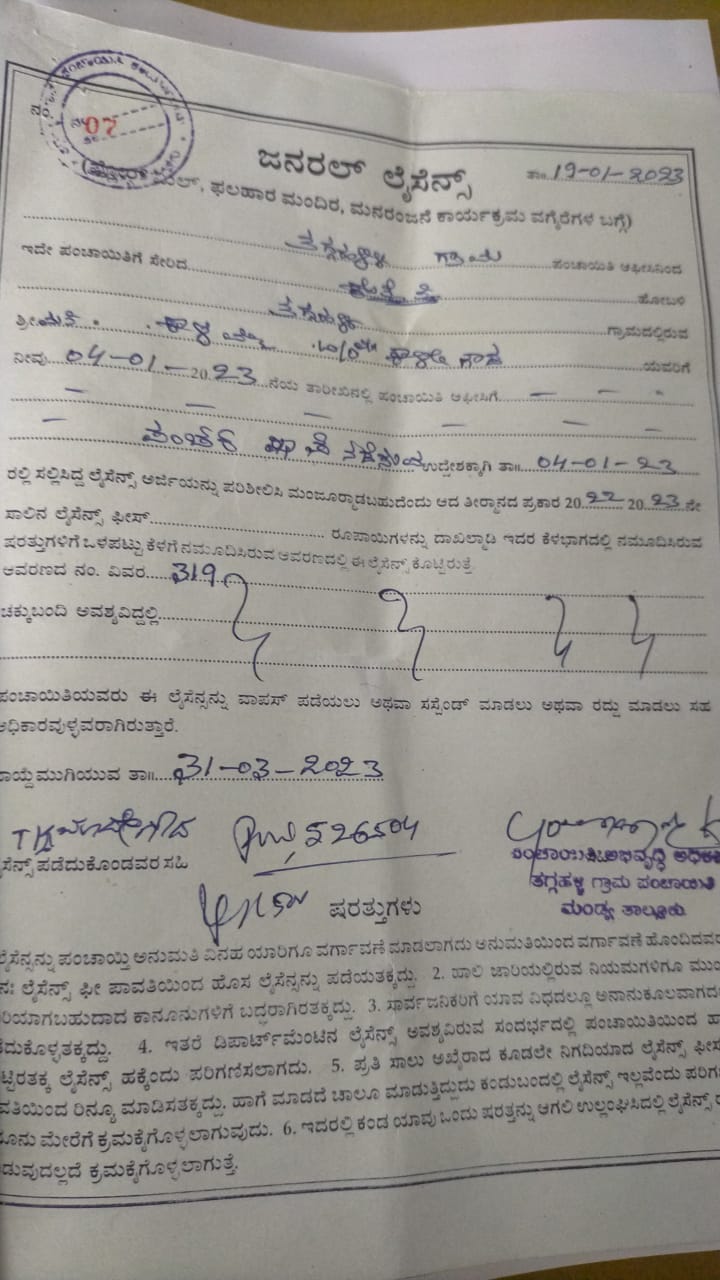 ನಂ. 07
ಜನರಲ್ ಲೈಸೆನ್ಸ್
ತಾ॥ 19-01-2023
ಫಲಹಾರ ಮಂದಿರ, ಮನರಂಜನೆ ಕಾರ್ಯಕ್ರಮ ವಗೈರೆಗಳ ಬಗ್ಗೆ)
ತಗ್ಗಹಳ್ಳಿ ಗ್ರಾಮ
ಇದೇ ಪಂಚಾಯಿತಿಗೆ ಸೇರಿದ ಪಂಚಾಯಿತಿ ಆಫೀಸಿನಿಂದ
ಹೋಬಳಿ
ತಗ್ಗಹಳ್ಳಿ ಗ್ರಾಮದಲ್ಲಿರುವ
ಶ್ರೀಮತಿ. ಯವರಿಗೆ
ನೀವು 04-01-2023 ನೆಯ ತಾರೀಖಿನಲ್ಲಿ ಪಂಚಾಯಿತಿ ಆಫೀಸಿಗೆ
ಉದ್ದೇಶಕ್ಕಾಗಿ ತಾ॥ 04-01-23
ರಲ್ಲಿ ಸಲ್ಲಿಸಿದ್ದ ಲೈಸೆನ್ಸ್ ಅರ್ಜಿಯನ್ನು ಪರಿಶೀಲಿಸಿ ಮಂಜೂರ್‍ಮಾಡಬಹುದೆಂದು ಆದ ತೀರ್ಮಾನದ ಪ್ರಕಾರ 2022 2023 ನೇ
ಸಾಲಿನ ಲೈಸೆನ್ಸ್ ಫೀಸ್ ರೂಪಾಯಿಗಳನ್ನು ದಾಖಲ್ಮಾಡಿ ಇದರ ಕೆಳಭಾಗದಲ್ಲಿ ನಮೂದಿಸಿರುವ
ಷರತ್ತುಗಳಿಗೆ ಒಳಪಟ್ಟು ಕೆಳಗೆ ನಮೂದಿಸಿರುವ ಆವರಣದಲ್ಲಿ ಈ ಲೈಸೆನ್ಸ್ ಕೊಟ್ಟಿರುತ್ತೆ.
ಆವರಣದ ನಂ. ವಿವರ 319
ಚಕ್ಕುಬಂದಿ ಅವಶ್ಯವಿದ್ದಲ್ಲಿ
ಪಂಚಾಯಿತಿಯವರು ಈ ಲೈಸೆನ್ಸನ್ನು ವಾಪಸ್ ಪಡೆಯಲು ಅಥವಾ ಸಸ್ಪೆಂಡ್ ಮಾಡಲು ಅಥವಾ ರದ್ದು ಮಾಡಲು ಸಹ
ಅಧಿಕಾರವುಳ್ಳವರಾಗಿರುತ್ತಾರೆ.
ಾಯ್ದೆಮುಗಿಯುವ ತಾ॥ 31-03-2023
526504
ಸೆನ್ಸ್ ಪಡೆದುಕೊಂಡವರ ಸಹಿ
ಪಂಚಾಯಿತಿ ಅಭಿವೃದ್ಧಿ ಅಧಿಕಾ
ತಗ್ಗಹಳ್ಳಿ ಗ್ರಾಮ ಪಂಚಾಯಿತಿ
ಮಂಡ್ಯ ತಾಲ್ಲೂಕು.
ಷರತ್ತುಗಳು
ಲೈಸೆನ್ಸನ್ನು ಪಂಚಾಯ್ತಿ ಅನುಮತಿ ವಿನಹ ಯಾರಿಗೂ ವರ್ಗಾವಣೆ ಮಾಡಲಾಗದು ಅನುಮತಿಯಿಂದ ವರ್ಗಾವಣೆ ಹೊಂದಿದವರ
ನಃ ಲೈಸೆನ್ಸ್ ಫೀ ಪಾವತಿಯಿಂದ ಹೊಸ ಲೈಸೆನ್ಸನ್ನು ಪಡೆಯತಕ್ಕದ್ದು. 2. ಹಾಲಿ ಜಾರಿಯಲ್ಲಿರುವ ನಿಯಮಗಳಿಗೂ ಮುಂ
ರಿಯಾಗಬಹುದಾದ ಕಾನೂನುಗಳಿಗೆ ಬದ್ಧರಾಗಿರತಕ್ಕದ್ದು. 3. ಸಾರ್ವಜನಿಕರಿಗೆ ಯಾವ ವಿಧದಲ್ಲೂ ಅನಾನುಕೂಲವಾಗದ
ದುಕೊಳ್ಳತಕ್ಕದ್ದು. 4. ಇತರೆ ಡಿಪಾರ್ಟ್‌ಮೆಂಟಿನ ಲೈಸೆನ್ಸ್ ಅವಶ್ಯವಿರುವ ಸಂದರ್ಭದಲ್ಲಿ ಪಂಚಾಯಿತಿಯಿಂದ ಹ
ಟ್ಟಿರತಕ್ಕ ಲೈಸೆನ್ಸ್ ಹಕ್ಕೆಂದು ಪರಿಗಣಿಸಲಾಗದು. 5. ಪ್ರತಿ ಸಾಲು ಅಖೈರಾದ ಕೂಡಲೇ ನಿಗದಿಯಾದ ಲೈಸೆನ್ಸ್ ಫೀಸ
ವತಿಯಿಂದ ರಿನ್ಯೂ ಮಾಡಿಸತಕ್ಕದ್ದು. ಹಾಗೆ ಮಾಡದೆ ಚಾಲೂ ಮಾಡುತ್ತಿದ್ದುದು ಕಂಡುಬಂದಲ್ಲಿ ಲೈಸೆನ್ಸ್ ಇಲ್ಲವೆಂದು ಪರಿಗ
ೂನು ಮೇರೆಗೆ ಕ್ರಮಕೈಗೊಳ್ಳಲಾಗುವುದು. 6. ಇದರಲ್ಲಿ ಕಂಡ ಯಾವು ಒಂದು ಷರತ್ತನ್ನು ಆಗಲಿ ಉಲ್ಲಂಘಿಸಿದಲ್ಲಿ ಲೈಸೆನ್ಸ್ ರ
ಡುವುದಲ್ಲದೆ ಕ್ರಮಕೈಗೊಳ್ಳಲಾಗುತ್ತೆ.